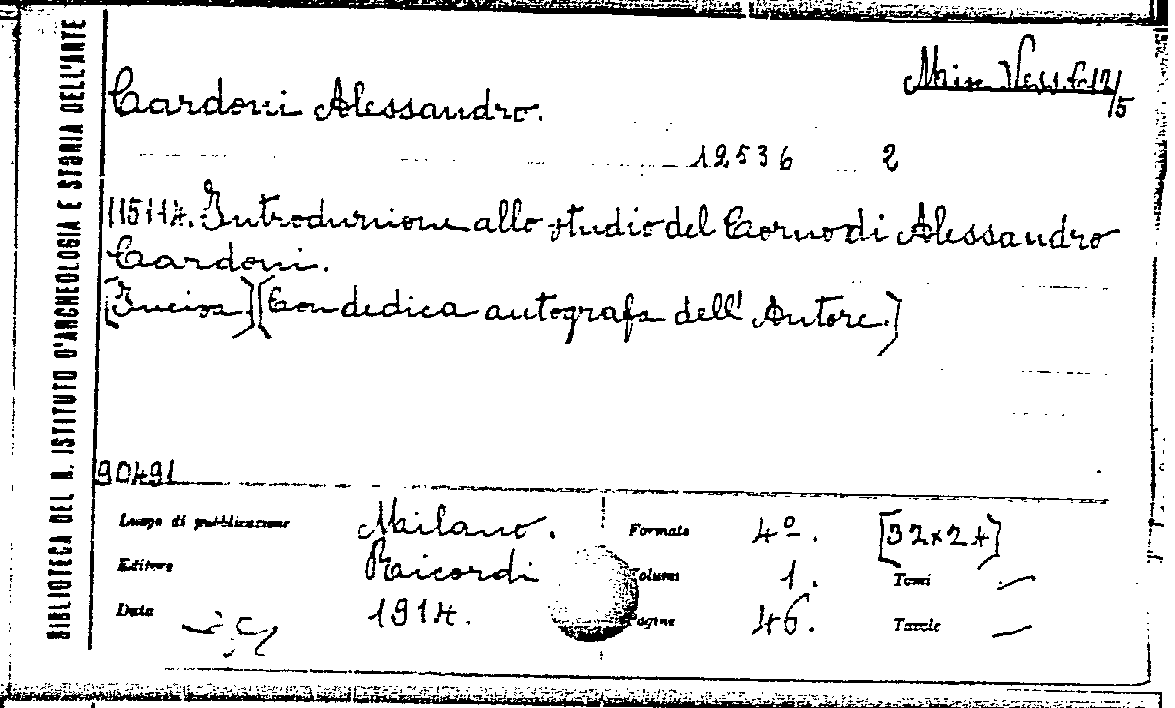 BIBLIOTECA DEL R. ISTITUTO D'ARCHEOLOGIA E STORIA DELL'ARTE
Cardoni Alessandro.
12536 2
115114. Introduzione allo studio del Corno di Alessandro
Cardoni.
[Con dedica autografa dell'Autore.]
90491
Luogo di pubblicazione Milano. Formato 4º. [32×24]
Editore Ricordi Volumi 1. Tomi —
Data 1914. Pagine 46. Tavole —